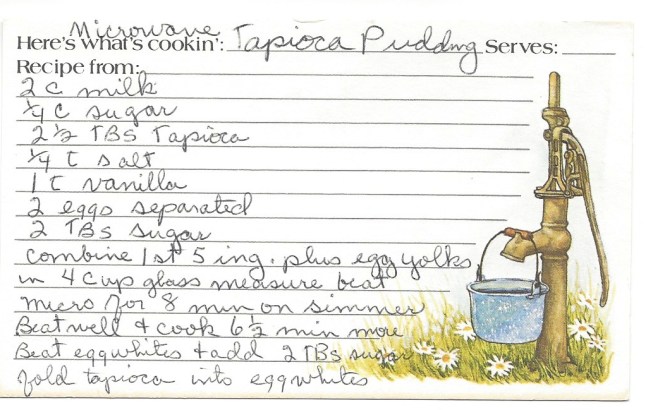 Microwave
Here's what's cookin': Tapioca Pudding Serves:
Recipe from:
2 c milk
1/4 c sugar
2 1/2 TBs Tapioca
1/4 t salt
1 t vanilla
2 eggs separated
2 TBs sugar
combine 1st 5 ing. plus egg yolks
in 4 cup glass measure beat
micro for 8 min on simmer
Beat well & cook 6 1/2 min more
Beat eggwhites & add 2 TBs sugar
fold tapioca into eggwhites